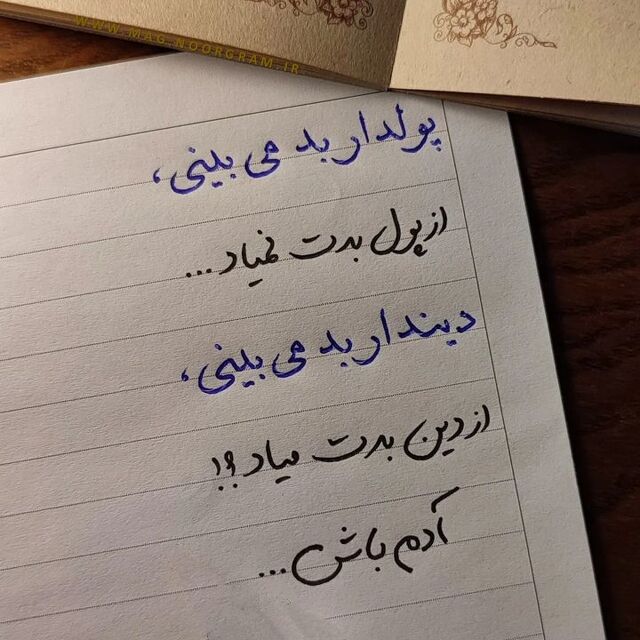 WWW.MAG.NOORGRAM.IR
پولدار بد می بینی،
از پول بدت نمیاد...
دیندار بد می بینی،
از دین بدت میاد؟!
آدم باش...